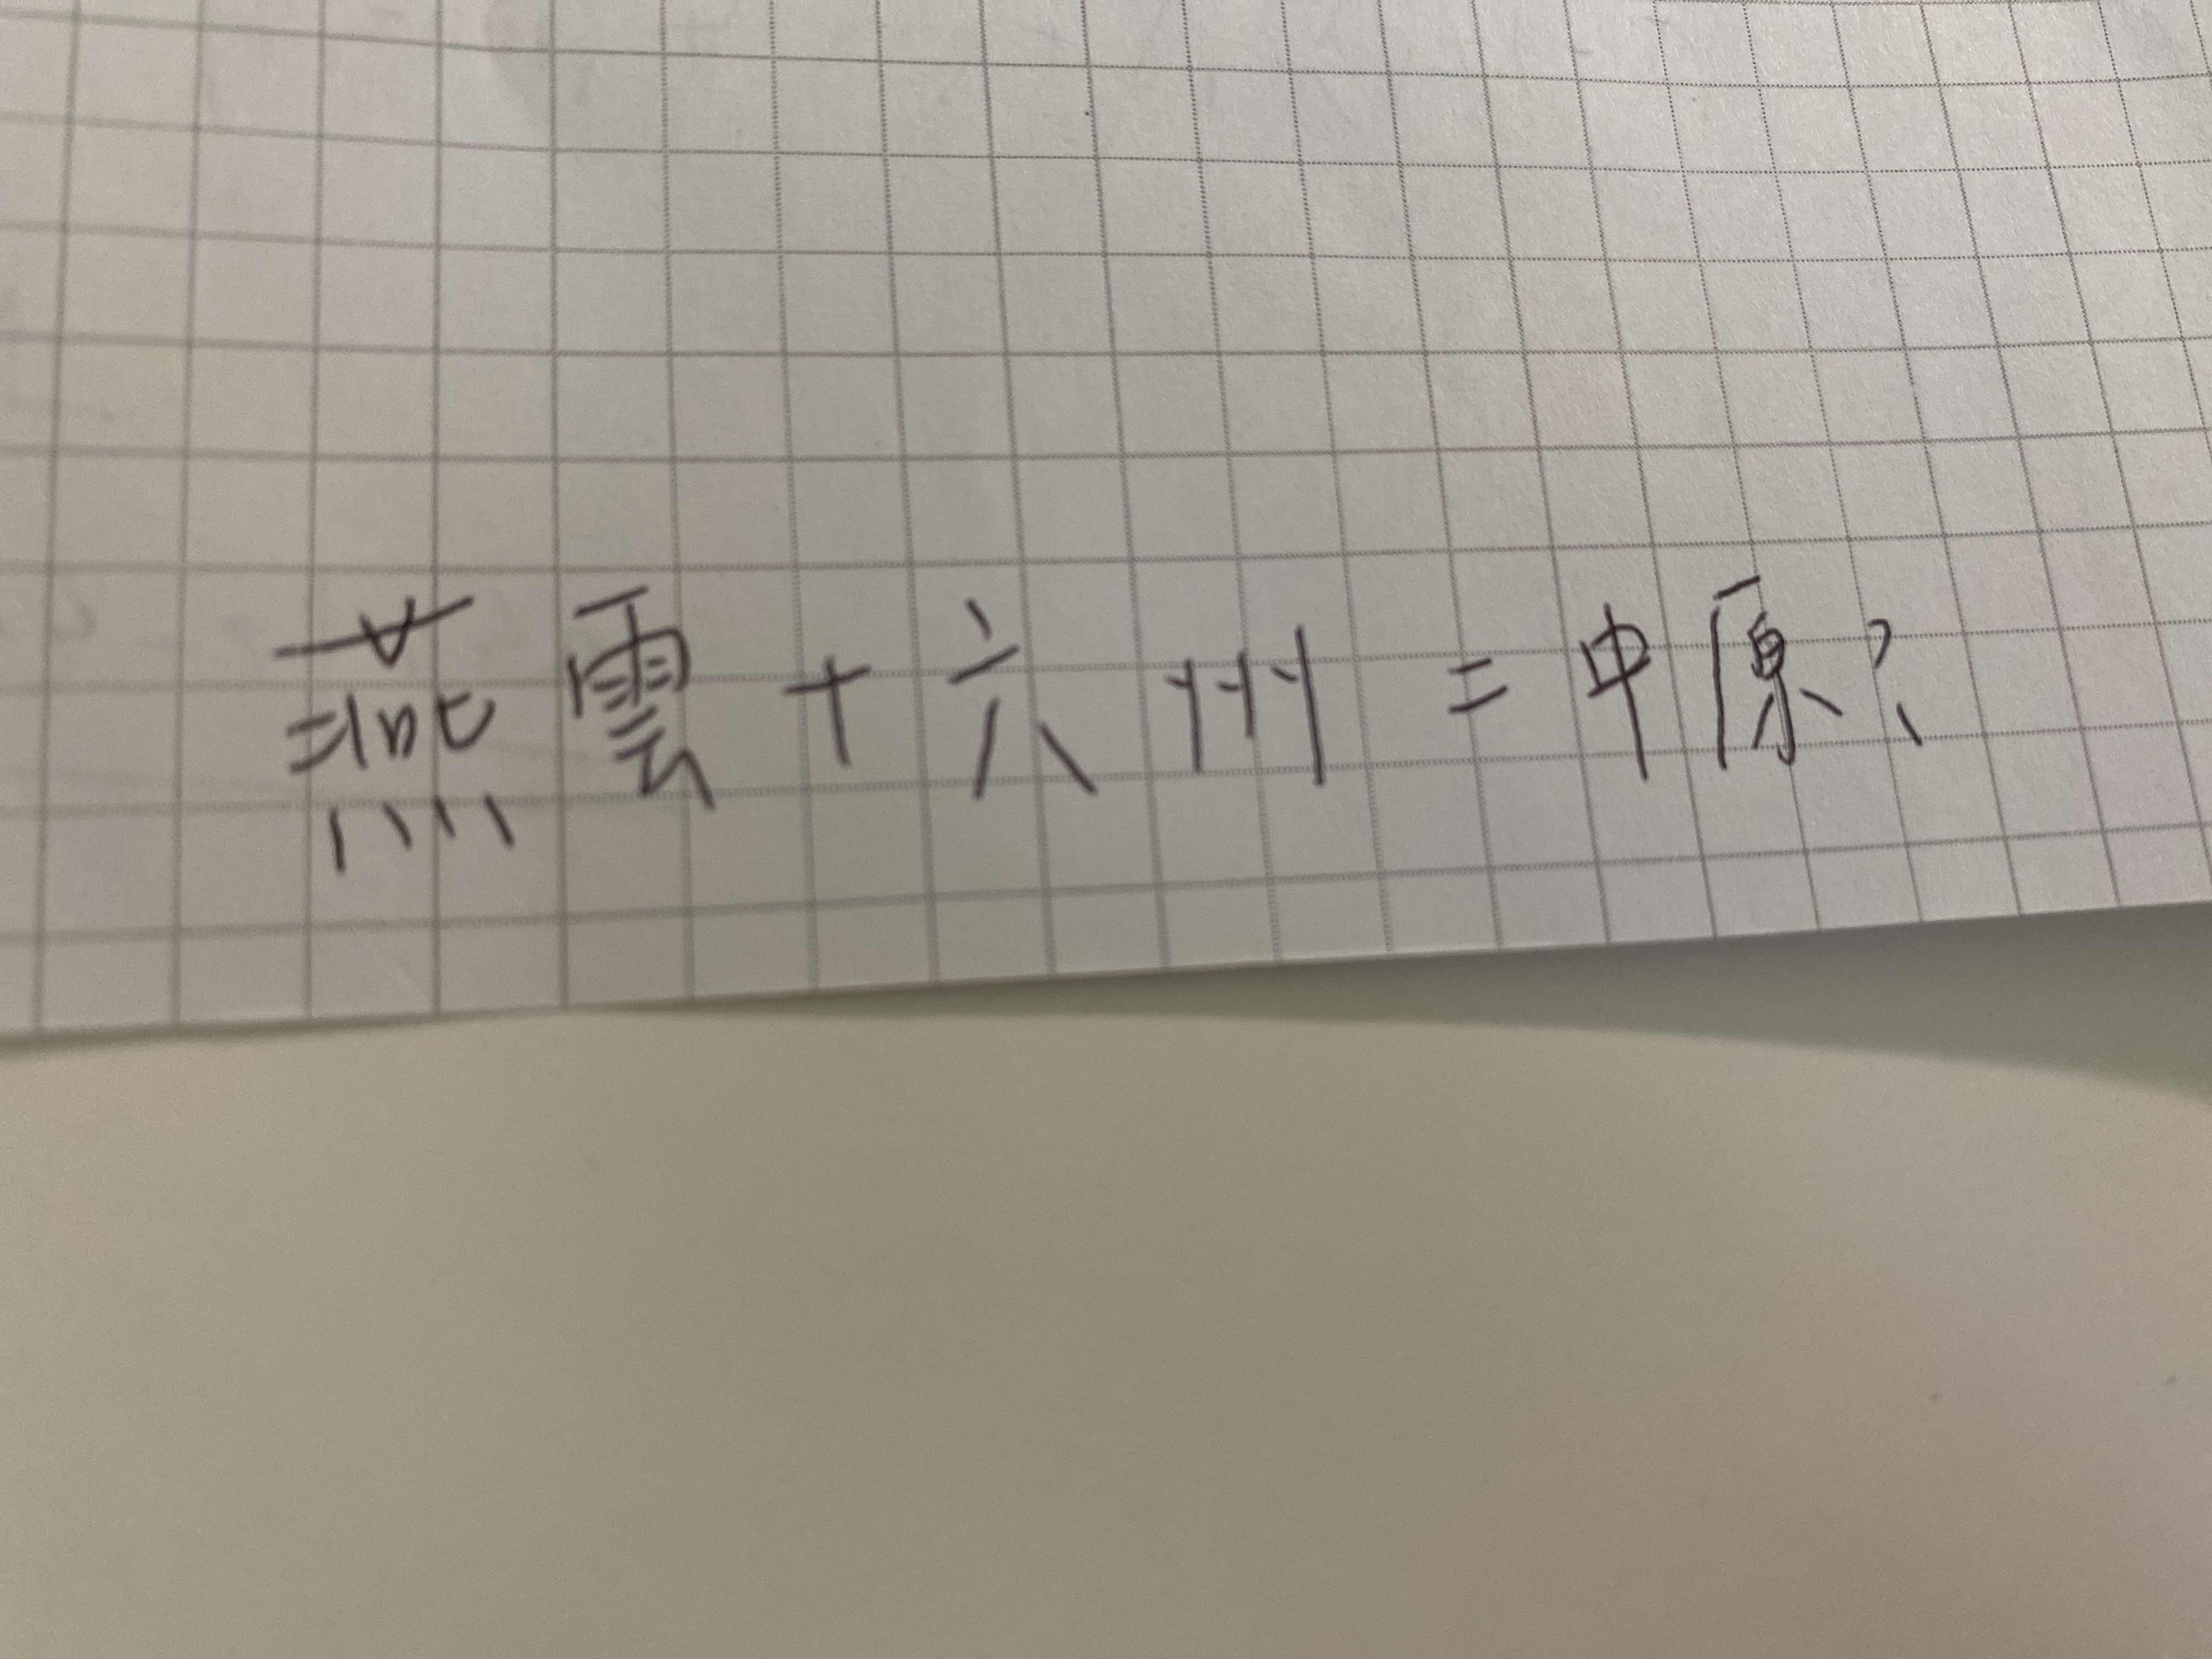 燕雲十六州=中原?